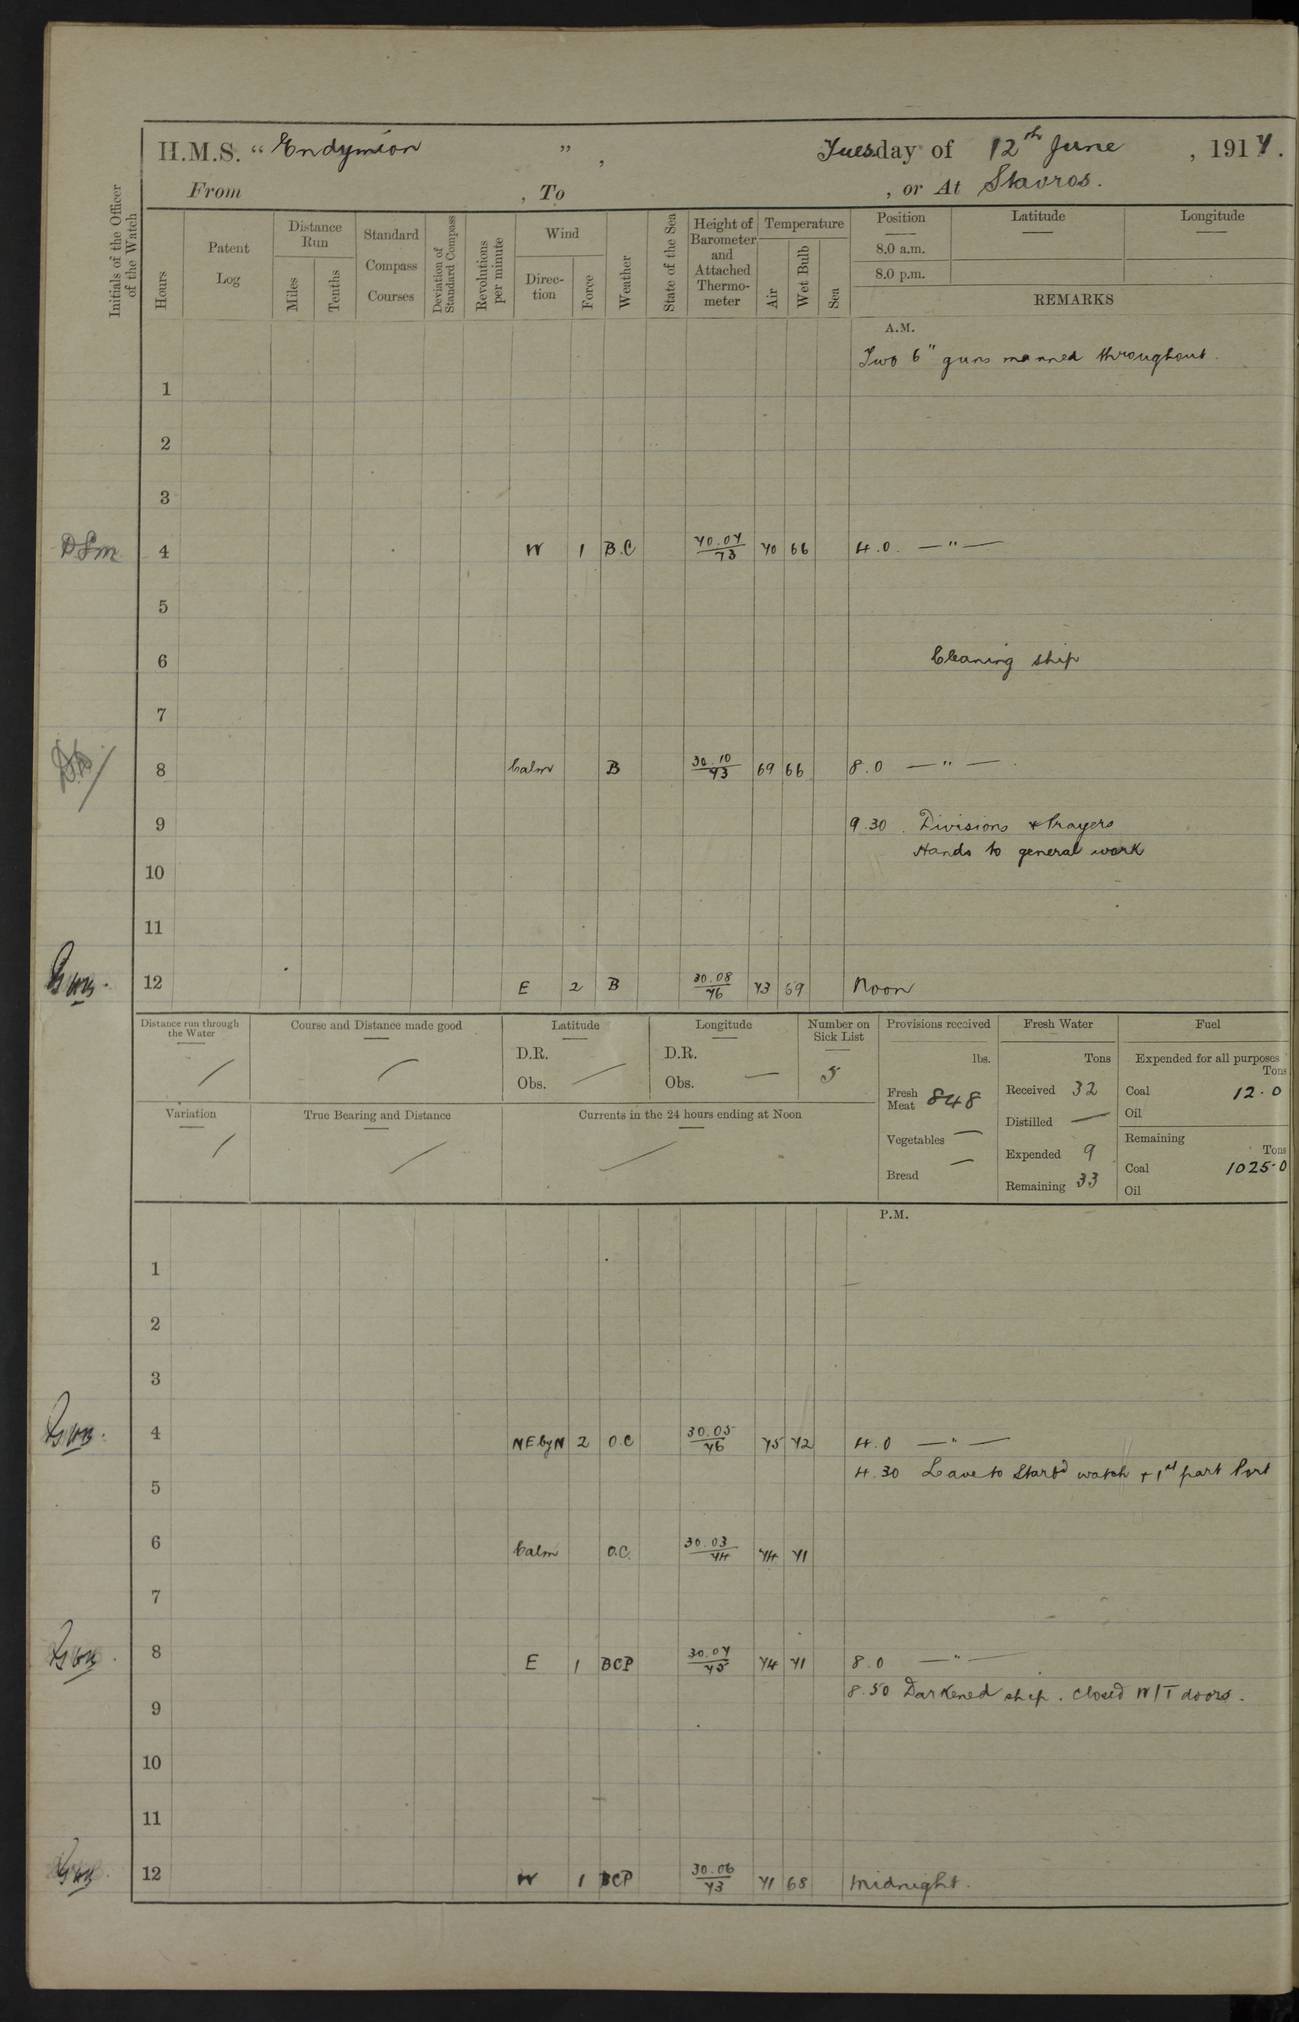 H.M.S. "Endymion", Tuesday of 12th June, 1917.
From , To , or At Stavros.
Initials of the Officer of the Watch
Hours
Patent Log
Distance Run
Miles
Tenths
Standard Compass Courses
Deviation of Standard Compass
Revolutions per minute
Wind
Direction
Force
Weather
State of the Sea
Height of Barometer and Attached Thermometer
Temperature
Air
Wet Bulb
Sea
Position
8.0 a.m.
8.0 p.m.
Latitude
Longitude
REMARKS
A.M.
Two 6" guns manned throughout.
1
2
3
4 W 1 B.C 70.07/73 70 66 4.0. —"—
5
6 Cleaning ship
7
8 Calm B 30.10/73 69 66 8.0 —"—.
9 9.30. Divisions & Prayers
Hands to general work
10
11
12 E 2 B 30.08/76 73 69 Noon
Distance run through the Water
Course and Distance made good
Latitude
D.R.
Obs.
Longitude
D.R.
Obs. —
Number on Sick List
5
Provisions received
lbs.
Fresh Meat 848
Vegetables —
Bread —
Fresh Water
Tons
Received 32
Distilled —
Expended 9
Remaining 33
Fuel
Expended for all purposes
Tons
Coal 12.0
Oil
Remaining
Tons
Coal 1025.0
Oil
Variation
True Bearing and Distance
Currents in the 24 hours ending at Noon
P.M.
1
2
3
4 NEbyN 2 O.C 30.05/76 75 72 4.0 —"—
4.30 Leave to Starbd watch + 1st part Port
5
6 Calm O.C. 30.03/74 74 71
7
8 E 1 BCP 30.07/75 74 71 8.0 —"—
8.50 Darkened ship. Closed W/T doors.
9
10
11
12 W 1 BCP 30.06/73 71 68 Midnight.